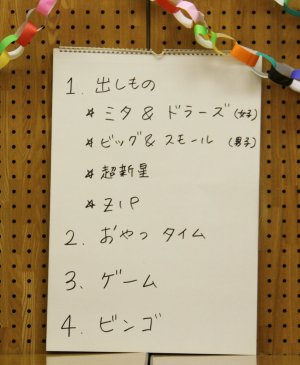 1. 出しもの
☆ ミタ & ドラーズ (女子)
☆ ビッグ & スモール (男子)
☆ 超新星
☆ ZIP
2. おやつ タイム
3. ゲーム
4. ビンゴ